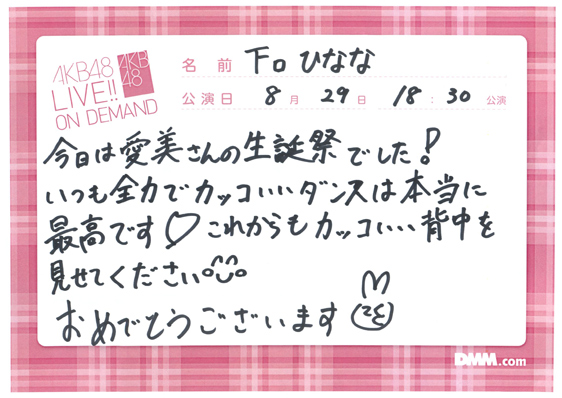 AKB48
LIVE!!
ON DEMAND
AKB
48
名前 下口ひなな
公演日 8月29日 18:30公演
今日は愛美さんの生誕祭でした!
いつも全力でカッコいいダンスは本当に
最高です♡これからもカッコいい背中を
見せてください
おめでとうございます
DMM.com